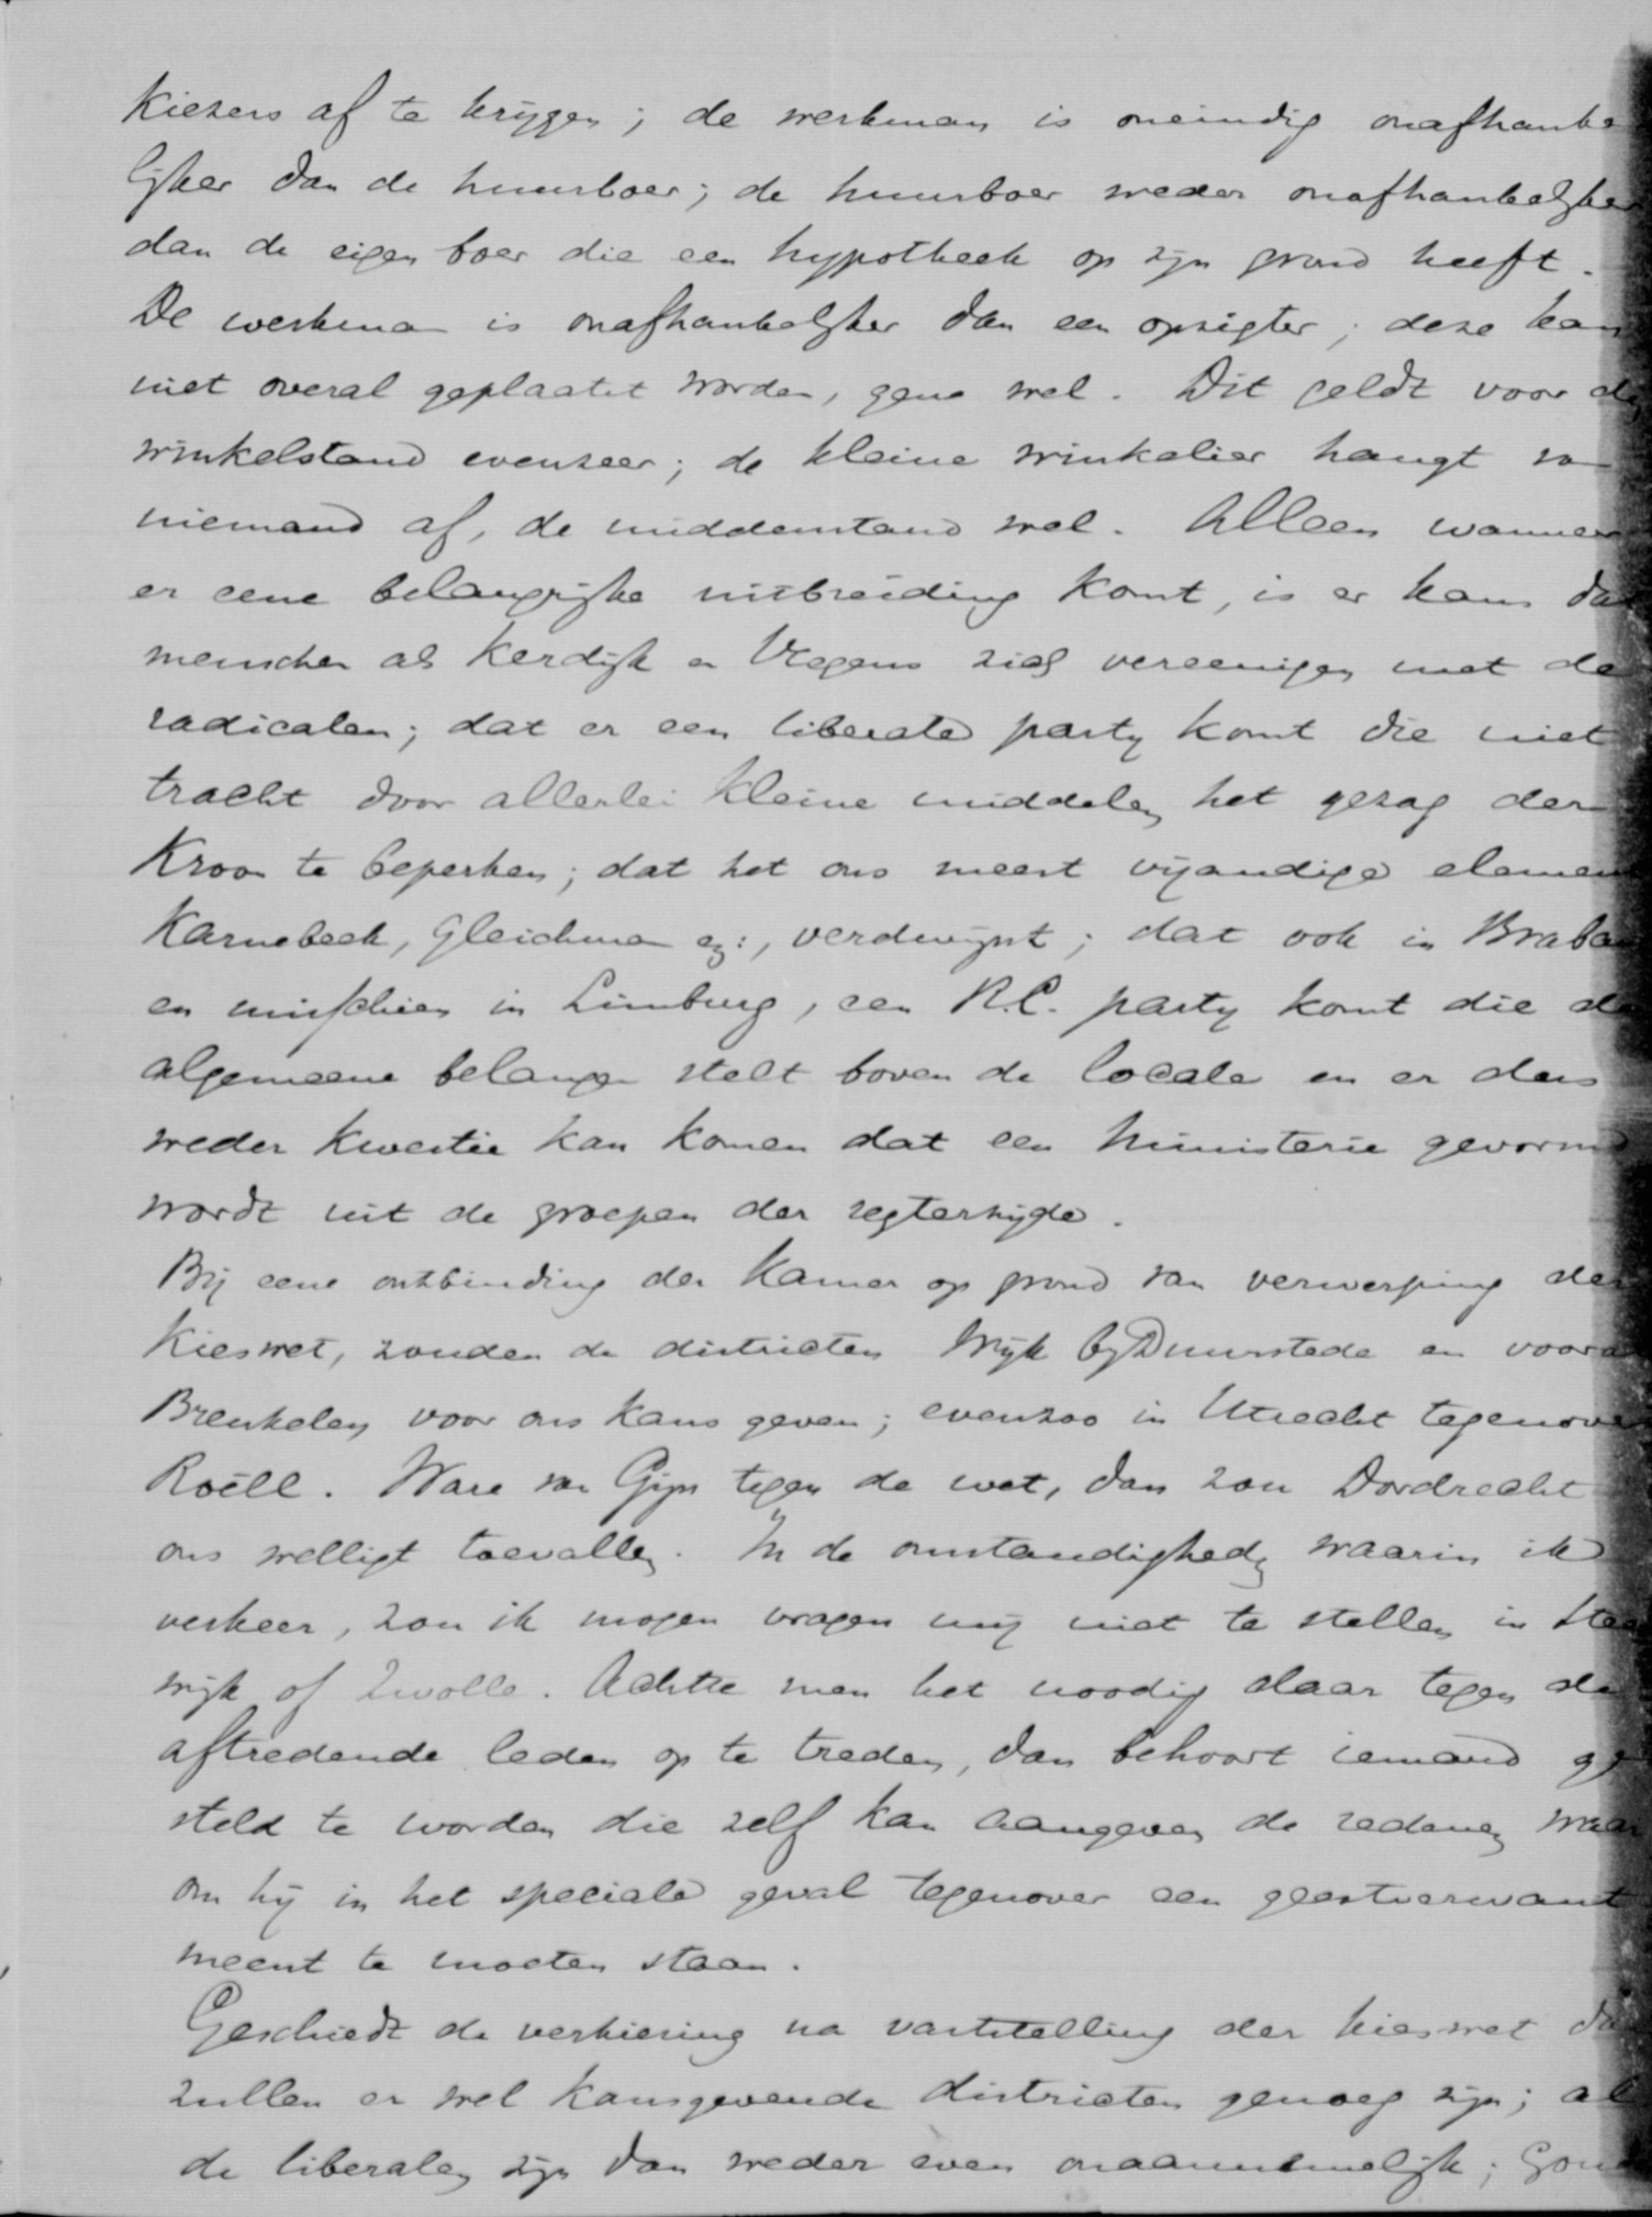 Kiezers af te krijgen; de werkman is oneindig onafhanke
lijker dan de huurboer; de huurboer weder onafhankelijker
dan de eigen boer die een hypotheek op zijn grond heeft.
De werkman is onafhankelijker dan een opzigter; deze kan
niet overal geplaatst worden, gene wel. Dit geldt voor den
winkelstand evenzeer; de kleine winkelier hangt van
niemand af, de middenstand wel. Alleen wanneer
er eene belangrijke uitbreiding komt, is er kans dat
menschen als Kerdijk en Veegens zich vereenigen met de
radicalen; dat er een liberale party komt die niet
tracht door allerlei kleine middelen het gezag der
Kroon te beperken; dat het ons meest vijandige element
Karnebeek, Gleichman ez:, verdwijnt; dat ook in Braban
en misschien in Limburg, een R.C. party komt die de
algemeene belangen stelt boven de locale en er dus
weder kwestie kan komen dat een Ministerie gevormd
wordt uit de groepen der regterzijde.
Bij eene ontbinding der Kamer op grond van verwerping der
Kieswet, zouden de districten Wijk bij Duurstede en vooral
Breukelen voor ons kans geven; evenzoo in Utrecht tegenover
Roëll. Ware van Gijn tegen de wet, dan zou Dordrecht
ons welligt toevallen. In de omstandigheden waarin ik
verkeer, zou ik mogen vragen mij niet te stellen in Steen
wijk of Zwolle. Achtte men het noodig daar tegen de
aftredende leden op te treden, dan behoort iemand ge
steld te worden die zelf kan aangeven de redenen waar
om hij in het speciale geval tegenover een geestverwant
meent te moeten staan.
Geschiedt de verkiezing na vaststelling der kieswet dan
zullen er wel kansgevende districten genoeg zijn; al
de liberalen zijn dan weder even onaannemelijk; Gou